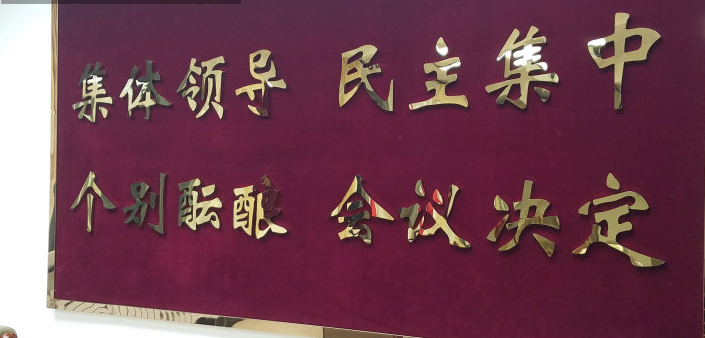 集体领导 民主集中
个别酝酿 会议决定